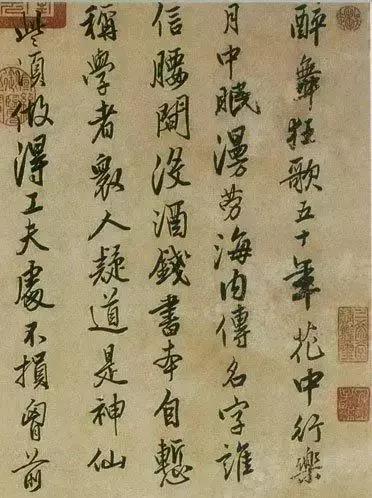 醉舞狂歌五十年花中行樂
月中眠漫勞海內傳名字誰
信腰間沒酒錢書本自慙
稱學者衆人疑道是神仙
些須做得工夫處不損胷前